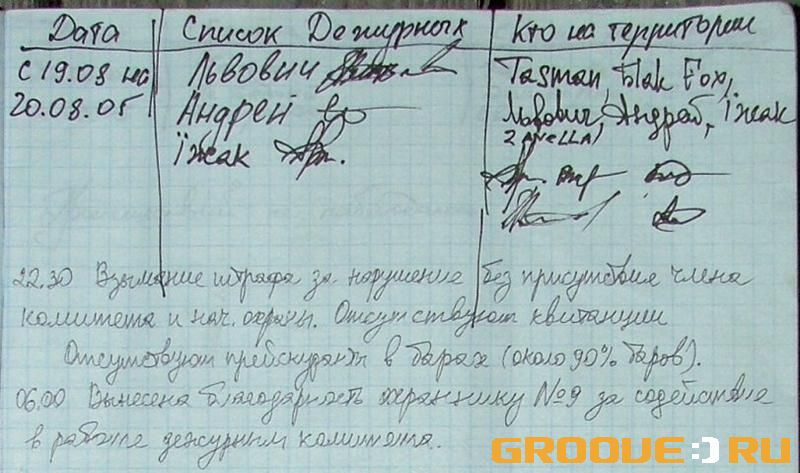 Дата Список Дежурных Кто на территории
с 19.08 на Львович Tasman, Блак Fox,
20.08.05 Андрей Львович, Андрей, Їжак
Їжак ZAVELLA)
22.30 Взымание штрафа за нарушение без присутствия члена
комитета и нач. охраны. Отсутствуют квитанции
Отсутствуют прейскуранты в барах (около 90% баров).
06.00 Вынесена благодарность охраннику №9 за содействие
в работе дежурным комитета.
GROOVE:)RU